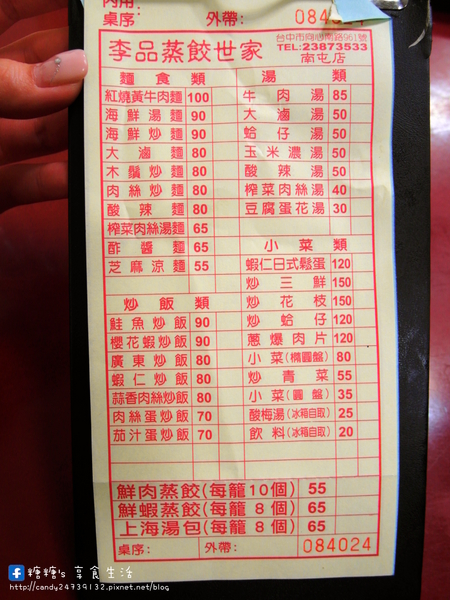 內用:
桌序: 外帶: 084024
李品蒸餃世家
台中市向心南路961號
TEL:23873533
南屯店
麵食類 湯類
紅燒黃牛肉麵 100 牛肉湯 85
海鮮湯麵 90 大滷湯 50
海鮮炒麵 90 蛤仔湯 50
大滷麵 80 玉米濃湯 50
木鬚炒麵 80 酸辣湯 50
肉絲炒麵 80 榨菜肉絲湯 40
酸辣麵 80 豆腐蛋花湯 30
榨菜肉絲湯麵 65
酢醬麵 65 小菜類
芝麻涼麵 55 蝦仁日式鬆蛋 120
炒三鮮 150
炒飯類 炒花枝 150
鮭魚炒飯 90 炒蛤仔 120
櫻花蝦炒飯 90 蔥爆肉片 120
廣東炒飯 80 小菜(橢圓盤) 80
蝦仁炒飯 80 炒青菜 55
蒜香肉絲炒飯 80 小菜(圓盤) 35
肉絲蛋炒飯 70 酸梅湯(冰箱自取) 25
茄汁蛋炒飯 70 飲料(冰箱自取) 20
鮮肉蒸餃(每籠10個) 55
鮮蝦蒸餃(每籠8個) 65
上海湯包(每籠8個) 65
桌序: 外帶: 084024
糖糖's 享食生活
http://candy24739132.pixnet.net/blog